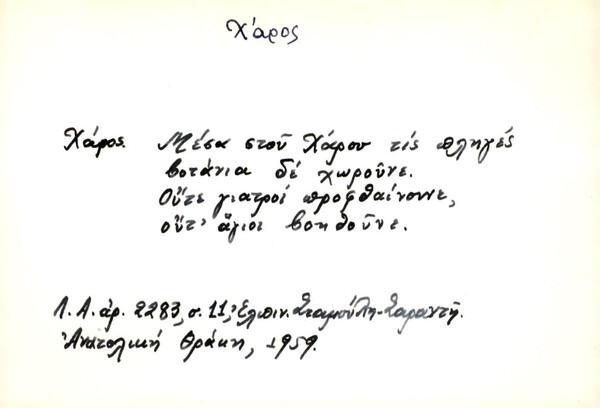 Χάρος
Χάρος. Μέσα στοῦ Χάρου τίς πληγές
βοτάνια δέ χωροῦνε.
Οὔτε γιατροί προφθαίνουνε,
οὔτ' ἅγιοι βοηθοῦνε.
Λ. Α. ἀρ. 2283, σ. 11, Ἐλπιν. Σταμούλη-Σαραντῆ.
Ἀνατολική Θράκη, 1959.